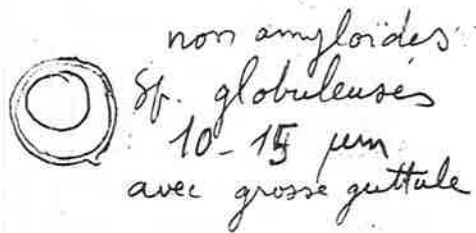 non amyloïdes
Sp. globuleuses
10-15 µm
avec grosse guttule